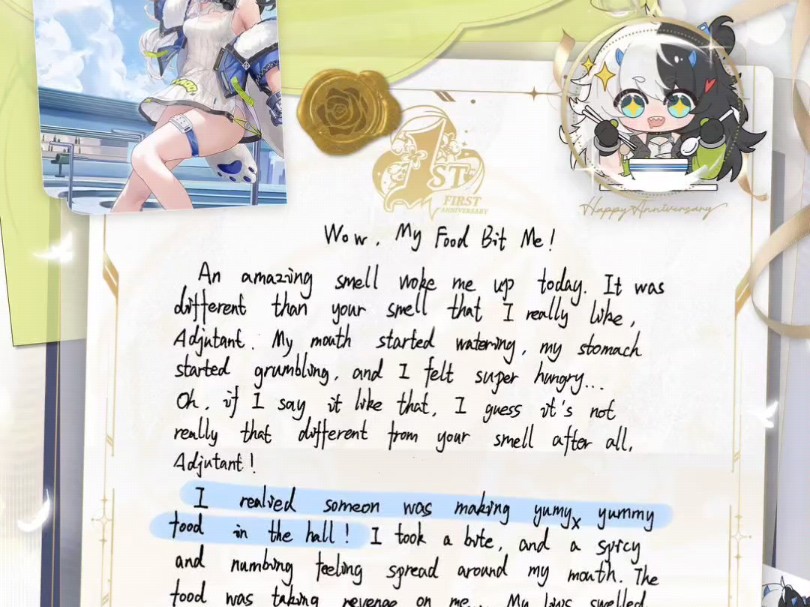 1ST
FIRST
ANNIVERSARY
Happy Anniversary
Wow, My Food Bit Me!
An amazing smell woke me up today. It was
different than your smell that I really like,
Adjutant. My mouth started watering, my stomach
started grumbling, and I felt super hungry...
Oh, if I say it like that, I guess it's not
really that different from your smell after all,
Adjutant!
I realied someon was making yumyx yummy
food in the hall! I took a bite, and a spicy
and numbing feeling spread around my mouth. The
food was taking revenge on me... My lips swelled